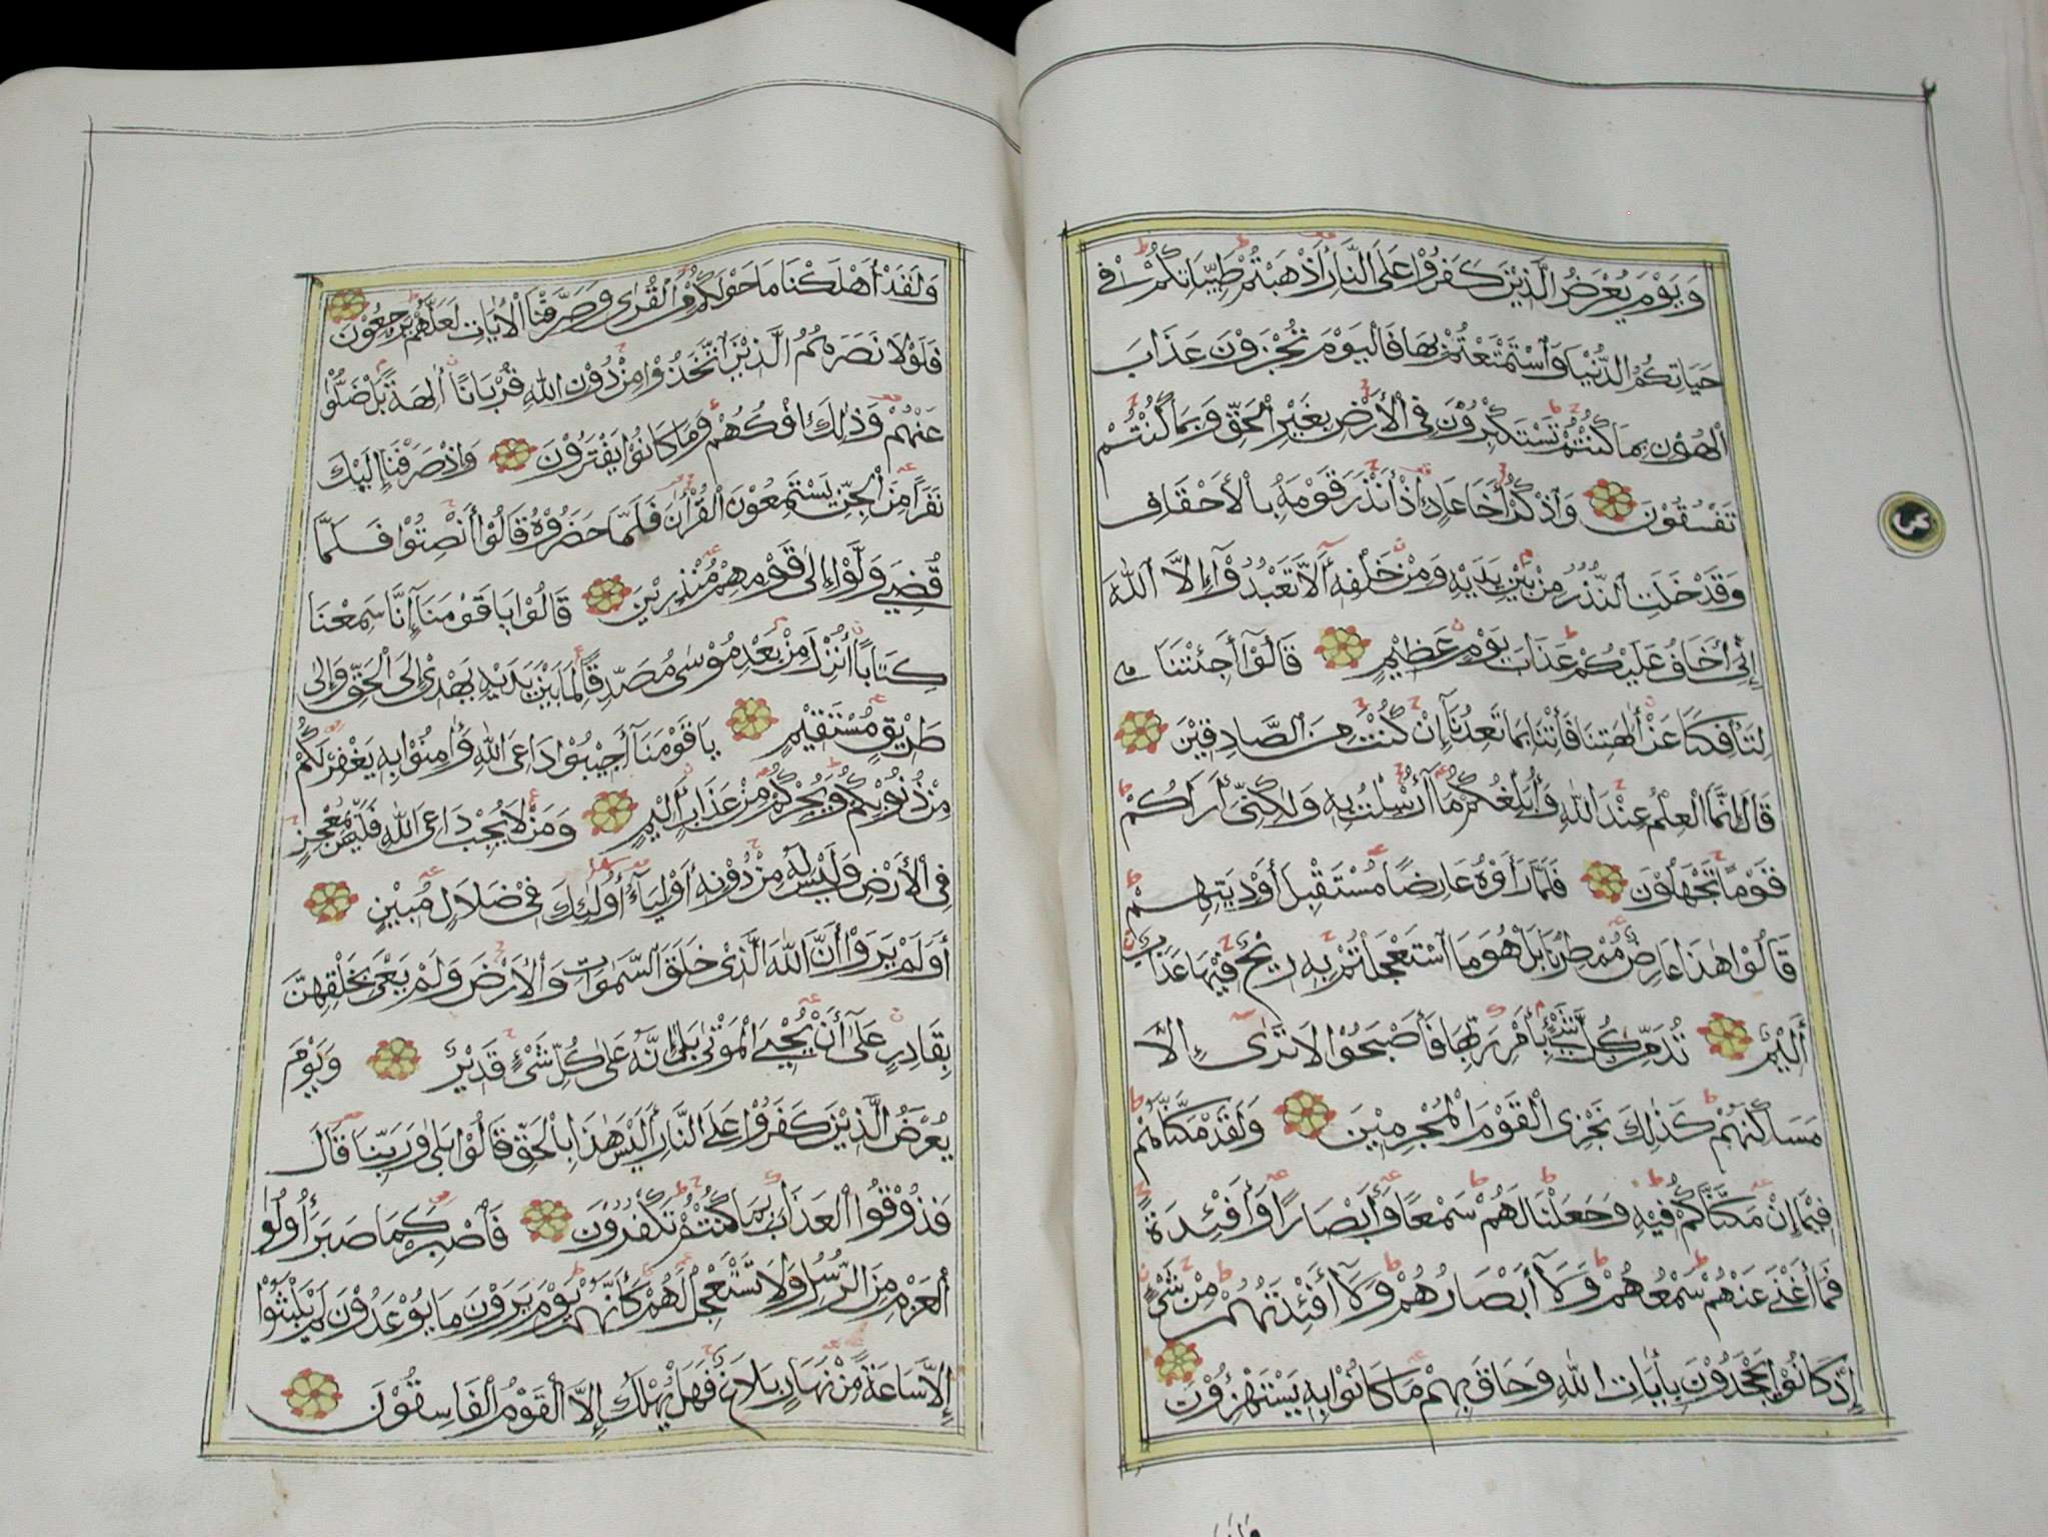 وَيَوْمَ يُعْرَضُ الَّذِيْنَ كَفَرُوْا عَلَى النَّارِ أَذْهَبْتُمْ طَيِّبَاتِكُمْ فِي
حَيَاتِكُمُ الدُّنْيَا وَاسْتَمْتَعْتُمْ بِهَا فَالْيَوْمَ تُجْزَوْنَ عَذَابَ
الْهُوْنِ بِمَا كُنْتُمْ تَسْتَكْبِرُوْنَ فِي الْأَرْضِ بِغَيْرِ الْحَقِّ وَبِمَا كُنْتُمْ
تَفْسُقُوْنَ وَاذْكُرْ أَخَا عَادٍ إِذْ أَنْذَرَ قَوْمَهُ بِالْأَحْقَافِ
وَقَدْ خَلَتِ النُّذُرُ مِنْ بَيْنِ يَدَيْهِ وَمِنْ خَلْفِهِ أَلَّا تَعْبُدُوْآ إِلَّا اللّٰهَ
إِنِّيْ أَخَافُ عَلَيْكُمْ عَذَابَ يَوْمٍ عَظِيْمٍ قَالُوْآ أَجِئْتَنَا
لِتَأْفِكَنَا عَنْ أٰلِهَتِنَا فَأْتِنَا بِمَا تَعِدُنَآ إِنْ كُنْتَ مِنَ الصَّادِقِيْنَ
قَالَ إِنَّمَا الْعِلْمُ عِنْدَ اللّٰهِ وَأُبَلِّغُكُمْ مَآ أُرْسِلْتُ بِهِ وَلٰكِنِّيْ أَرَاكُمْ
قَوْمًا تَجْهَلُوْنَ فَلَمَّا رَأَوْهُ عَارِضًا مُسْتَقْبِلَ أَوْدِيَتِهِمْ
قَالُوْا هٰذَا عَارِضٌ مُمْطِرُنَا بَلْ هُوَ مَا اسْتَعْجَلْتُمْ بِهِ رِيْحٌ فِيْهَا عَذَابٌ
أَلِيْمٌ تُدَمِّرُ كُلَّ شَيْءٍ بِأَمْرِ رَبِّهَا فَأَصْبَحُوْا لَا تَرَىٰ إِلَّا
مَسَاكِنَهُمْ كَذٰلِكَ نَجْزِي الْقَوْمَ الْمُجْرِمِيْنَ وَلَقَدْ مَكَّنَّاهُمْ
فِيْمَآ إِنْ مَكَّنَّاكُمْ فِيْهِ وَجَعَلْنَا لَهُمْ سَمْعًا وَأَبْصَارًا وَأَفْئِدَةً
فَمَآ أَغْنٰى عَنْهُمْ سَمْعُهُمْ وَلَآ أَبْصَارُهُمْ وَلَآ أَفْئِدَتُهُمْ مِنْ شَيْءٍ
إِذْ كَانُوْا يَجْحَدُوْنَ بِأٰيَاتِ اللّٰهِ وَحَاقَ بِهِمْ مَا كَانُوْا بِهِ يَسْتَهْزِؤُوْنَ
وَلَقَدْ أَهْلَكْنَا مَا حَوْلَكُمْ مِنَ الْقُرٰى وَصَرَّفْنَا الْأٰيَاتِ لَعَلَّهُمْ يَرْجِعُوْنَ
فَلَوْلَا نَصَرَهُمُ الَّذِيْنَ اتَّخَذُوْا مِنْ دُوْنِ اللّٰهِ قُرْبَانًا أٰلِهَةً بَلْ ضَلُّوْا
عَنْهُمْ وَذٰلِكَ إِفْكُهُمْ وَمَا كَانُوْا يَفْتَرُوْنَ وَإِذْ صَرَفْنَا إِلَيْكَ
نَفَرًا مِنَ الْجِنِّ يَسْتَمِعُوْنَ الْقُرْأٰنَ فَلَمَّا حَضَرُوْهُ قَالُوْا أَنْصِتُوْا فَلَمَّا
قُضِيَ وَلَّوْا إِلٰى قَوْمِهِمْ مُنْذِرِيْنَ قَالُوْا يَا قَوْمَنَآ إِنَّا سَمِعْنَا
كِتَابًا أُنْزِلَ مِنْ بَعْدِ مُوْسٰى مُصَدِّقًا لِمَا بَيْنَ يَدَيْهِ يَهْدِيْ إِلَى الْحَقِّ وَإِلٰى
طَرِيْقٍ مُسْتَقِيْمٍ يَا قَوْمَنَآ أَجِيْبُوْا دَاعِيَ اللّٰهِ وَأٰمِنُوْا بِهِ يَغْفِرْ لَكُمْ
مِنْ ذُنُوْبِكُمْ وَيُجِرْكُمْ مِنْ عَذَابٍ أَلِيْمٍ وَمَنْ لَا يُجِبْ دَاعِيَ اللّٰهِ فَلَيْسَ بِمُعْجِزٍ
فِي الْأَرْضِ وَلَيْسَ لَهُ مِنْ دُوْنِهِ أَوْلِيَآءُ أُولٰئِكَ فِيْ ضَلَالٍ مُبِيْنٍ
أَوَلَمْ يَرَوْا أَنَّ اللّٰهَ الَّذِيْ خَلَقَ السَّمٰوَاتِ وَالْأَرْضَ وَلَمْ يَعْيَ بِخَلْقِهِنَّ
بِقَادِرٍ عَلٰٓى أَنْ يُحْيِيَ الْمَوْتٰى بَلٰى إِنَّهُ عَلٰى كُلِّ شَيْءٍ قَدِيْرٌ وَيَوْمَ
يُعْرَضُ الَّذِيْنَ كَفَرُوْا عَلَى النَّارِ أَلَيْسَ هٰذَا بِالْحَقِّ قَالُوْا بَلٰى وَرَبِّنَا قَالَ
فَذُوْقُوا الْعَذَابَ بِمَا كُنْتُمْ تَكْفُرُوْنَ فَاصْبِرْ كَمَا صَبَرَ أُولُو
الْعَزْمِ مِنَ الرُّسُلِ وَلَا تَسْتَعْجِلْ لَهُمْ كَأَنَّهُمْ يَوْمَ يَرَوْنَ مَا يُوْعَدُوْنَ لَمْ يَلْبَثُوْا
إِلَّا سَاعَةً مِنْ نَهَارٍ بَلَاغٌ فَهَلْ يُهْلَكُ إِلَّا الْقَوْمُ الْفَاسِقُوْنَ